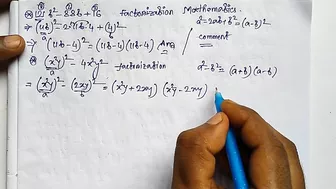 121b² = 88b + 16 factorization Mathematics.
⇒ (11b)² = 2·11b·4 + (4)² a² = 2ab + b² = (a-b)²
⇒ (11b-4)² = (11b-4)(11b-4) Ans comment
(x²y)² = 4x²y² factorization a² = b² = (a+b)(a-b)
= (x²y)² = (2xy)² = (x²y+2xy)(x²y-2xy)
a b